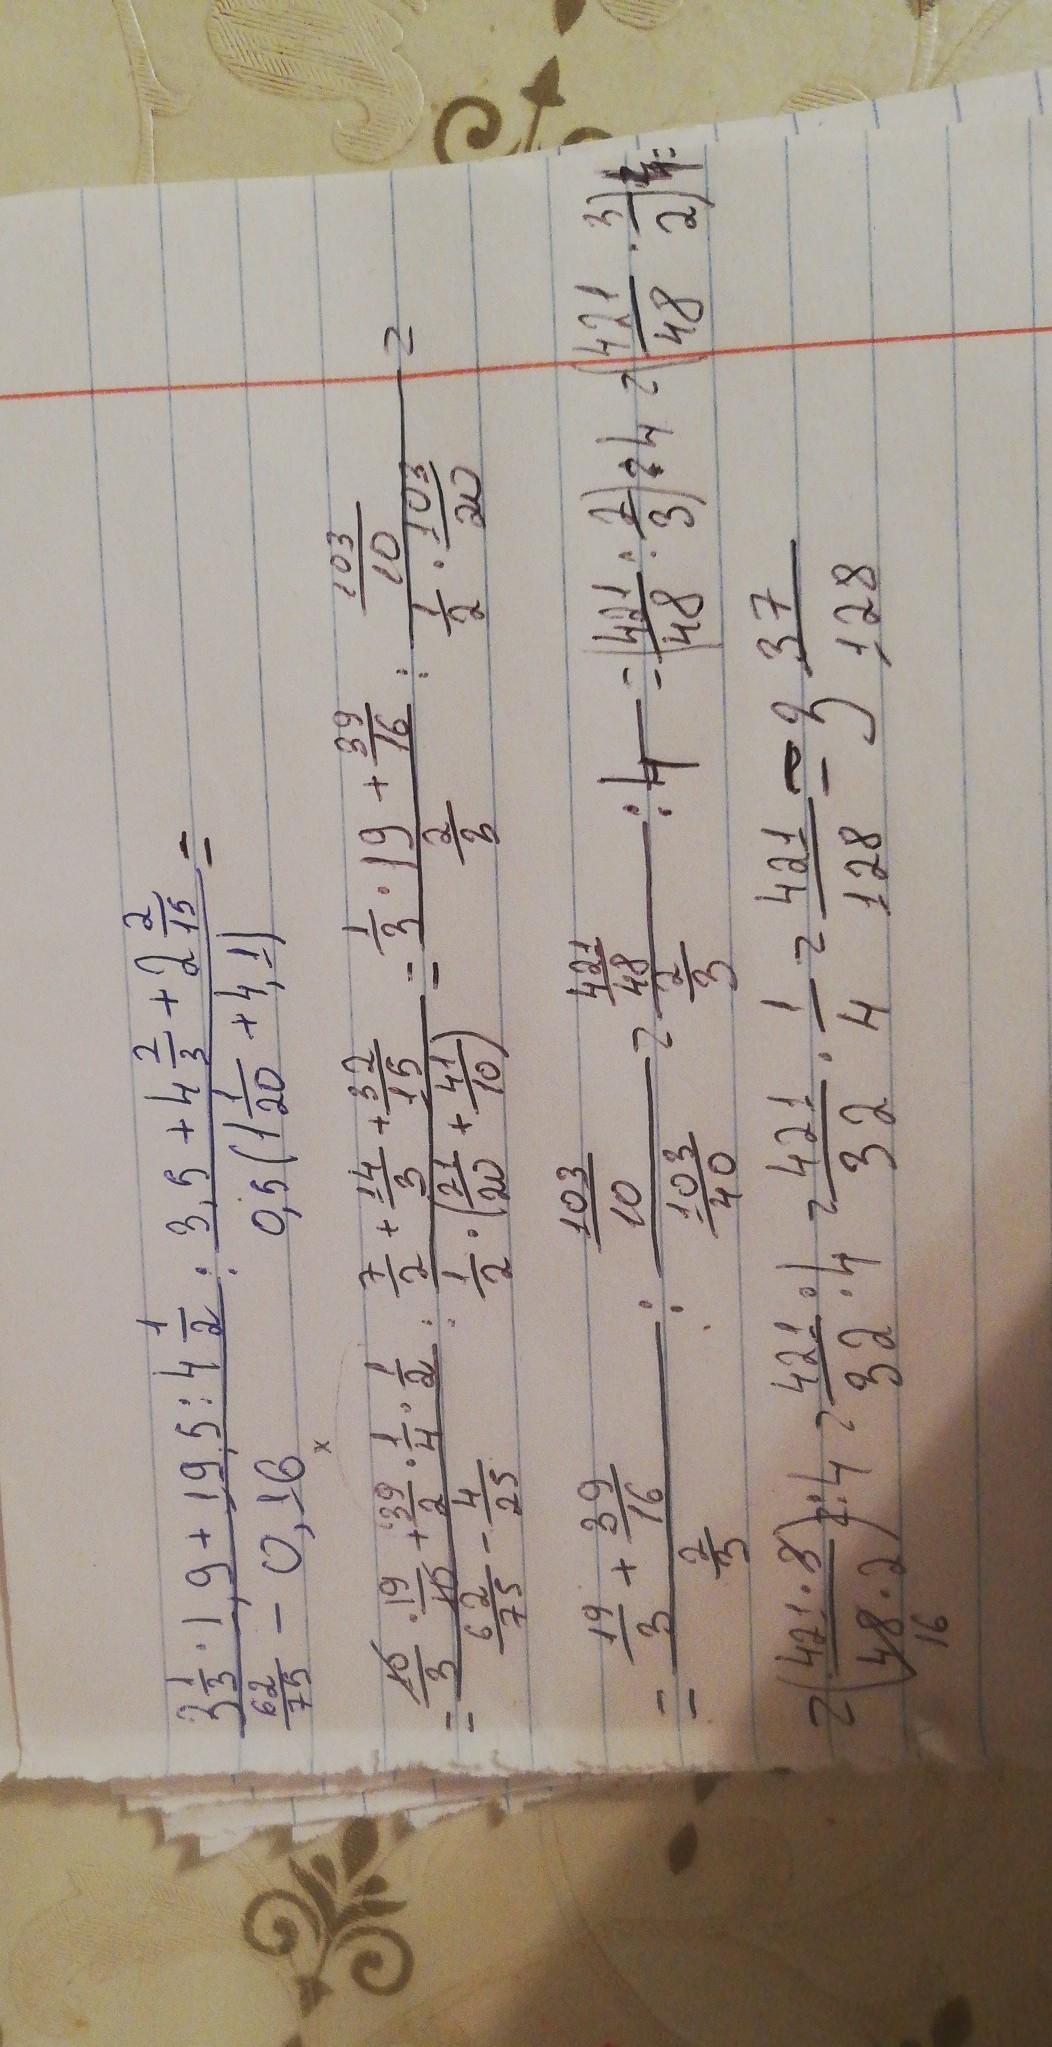 (3 1/3 · 1,9 + 19,5 : 4 1/2)/(62/75 - 0,16) : (3,5 + 4 2/3 + 2 2/15)/(0,5(1 1/20 + 4,1)) =
= (10/3 · 19/10 + 39/2 · 1/4 · 1/2)/(62/75 - 4/25) : (7/2 + 14/3 + 32/15)/(1/2 · (21/20 + 41/10)) = (1/3 · 19 + 39/16)/(2/3) : (103/10)/(1/2 · 103/20) =
= (19/3 + 39/16)/(2/3) : (103/10)/(103/40) = (421/48)/(2/3) : 4 = (421/48 : 2/3) : 4 = (421/48 · 3/2) : 4 =
= (421 · 3/48 · 2) : 4 = 421/32 : 4 = 421/32 · 1/4 = 421/128 = 3 37/128
16